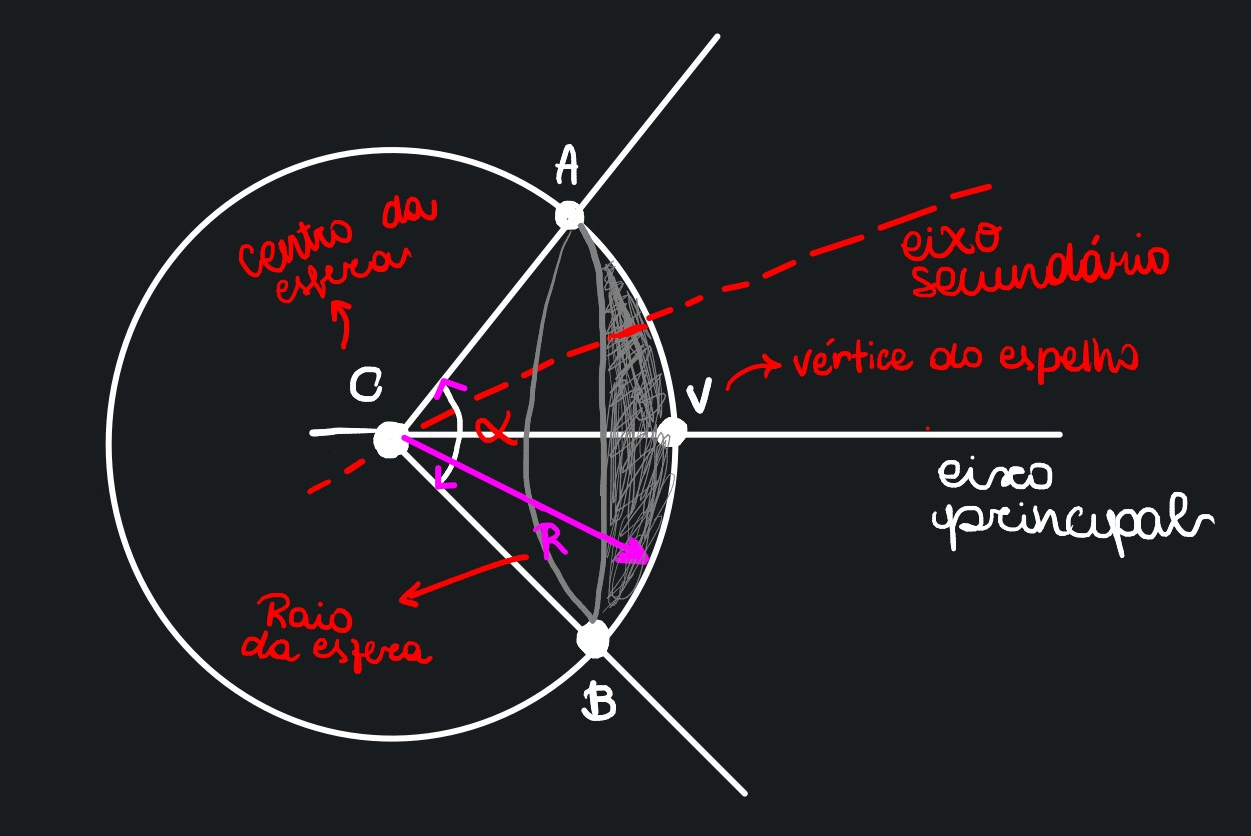 A
centro da
esfera
eixo
secundário
vértice do espelho
C
V
α
eixo
principal
R
Raio
da esfera
B